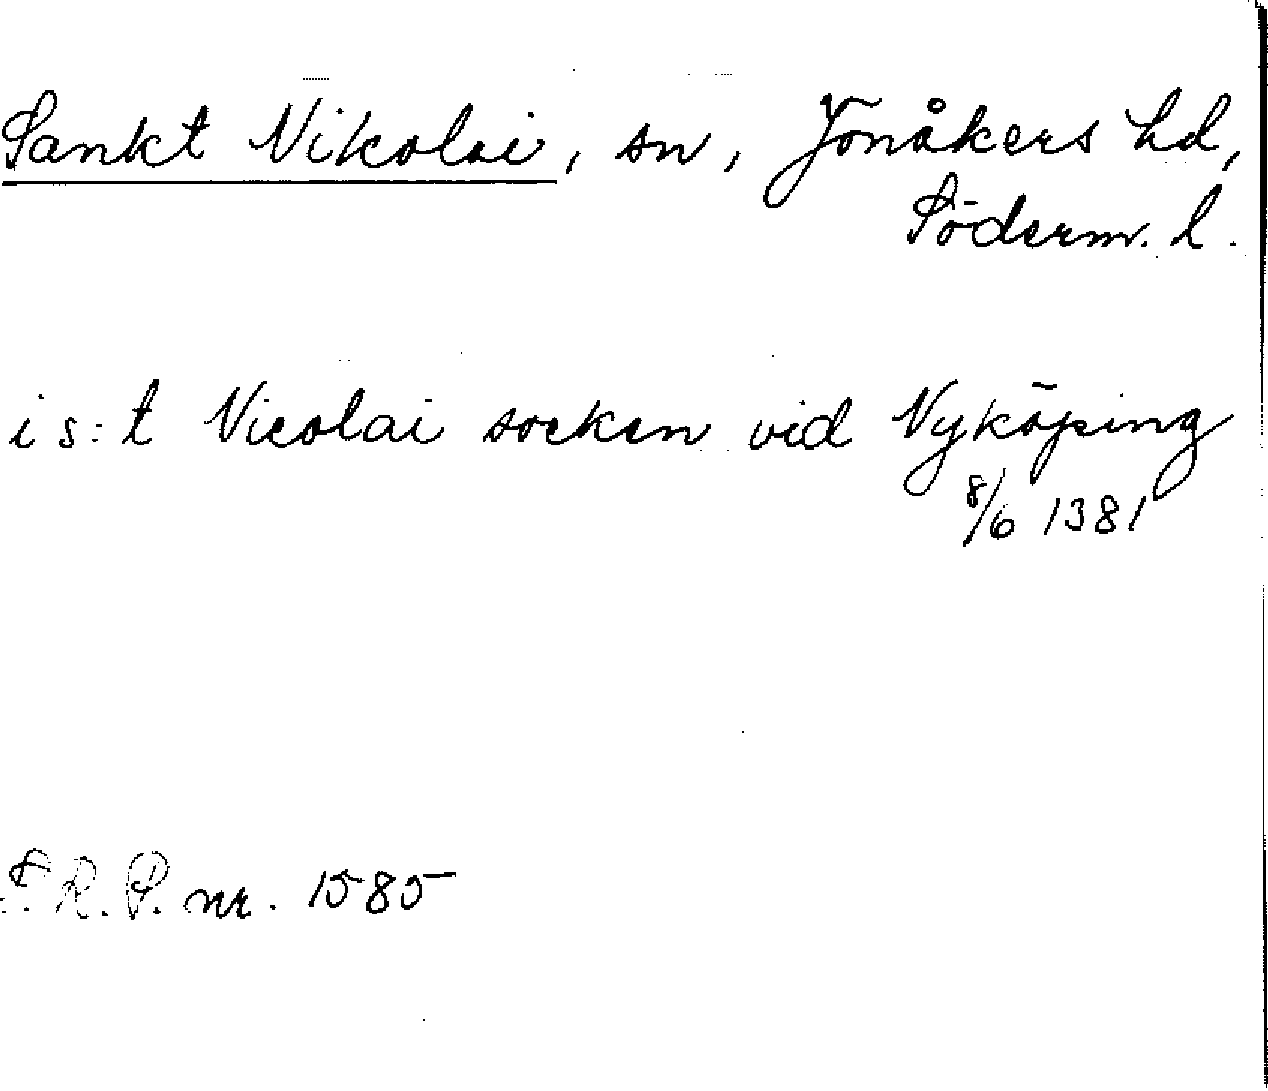 Sankt Nikolai, sn, Jonåkers hd,
Söderm. l.
i s:t Nicolai socken vid Nyköping
8/6 1381
R. P. nr. 1585